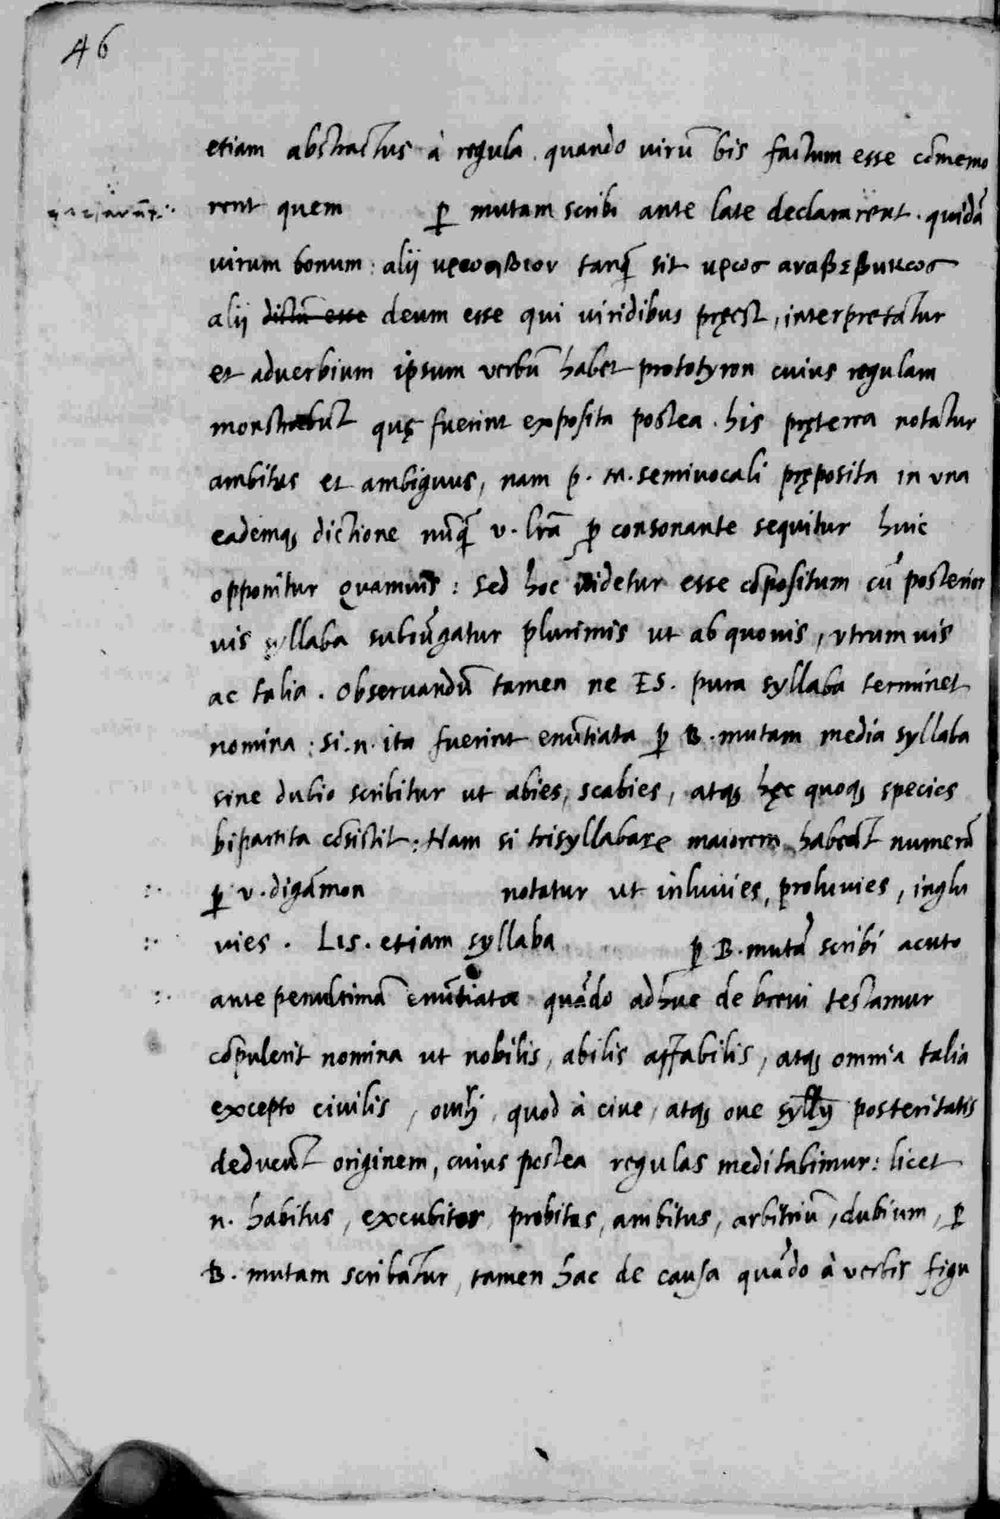 46
etiam abstractus à regula quando virū bis factum esse cōmemo
rent quem ꝑ mutam scribi ante late declararent . quidā
virum bonum : alij tanꝗ̄ sit υρωσ
alij dictū esse deum esse qui viridibus pręest, interpretātur
et adverbium ipsum verbū habet prototypon cuius regulam
monstrabūt quę fuerint exposita postea . his pręterea notātur
ambitus et ambiguus, nam p. m. semivocali pręposita in una
eademq; dictione nūꝗ̄ v. lrā ꝓ consonante sequitur huic
opponitur Quamvis : sed hoc videtur esse cōpositum cū posterior
vis syllaba subiūgatur plurimis ut ab quovis, utrum vis
ac talia . Observandū tamen ne ES. pura syllaba terminet
nomina : si .n. ita fuerint enūtiata ꝑ B. mutam media syllaba
sine dubio scribitur ut abies, scabies, atq; hęc quoq; species
bipartita cōsistit : Nam si trisyllabare maiorem habeāt numerū
ꝑ v. digāmon notatur ut inluvies, proluvies, inglu
vies . Lis. etiam syllaba ꝑ B. mutā scribi acuto
ante penultimā enūtiatæ quādo adhuc de brevi testamur
cōpulerit nomina ut nobilis, abilis affabilis, atq; omnia talia
excepto civilis, quod à cive, atq; ove posteritatis
deducūt originem, cuius postea regulas meditabimur : licet
n. habitus, excubitor, probitas, ambitus, arbitriū, dubium, ꝑ
B. mutam scribātur, tamen hac de causa quādo à verbis figu